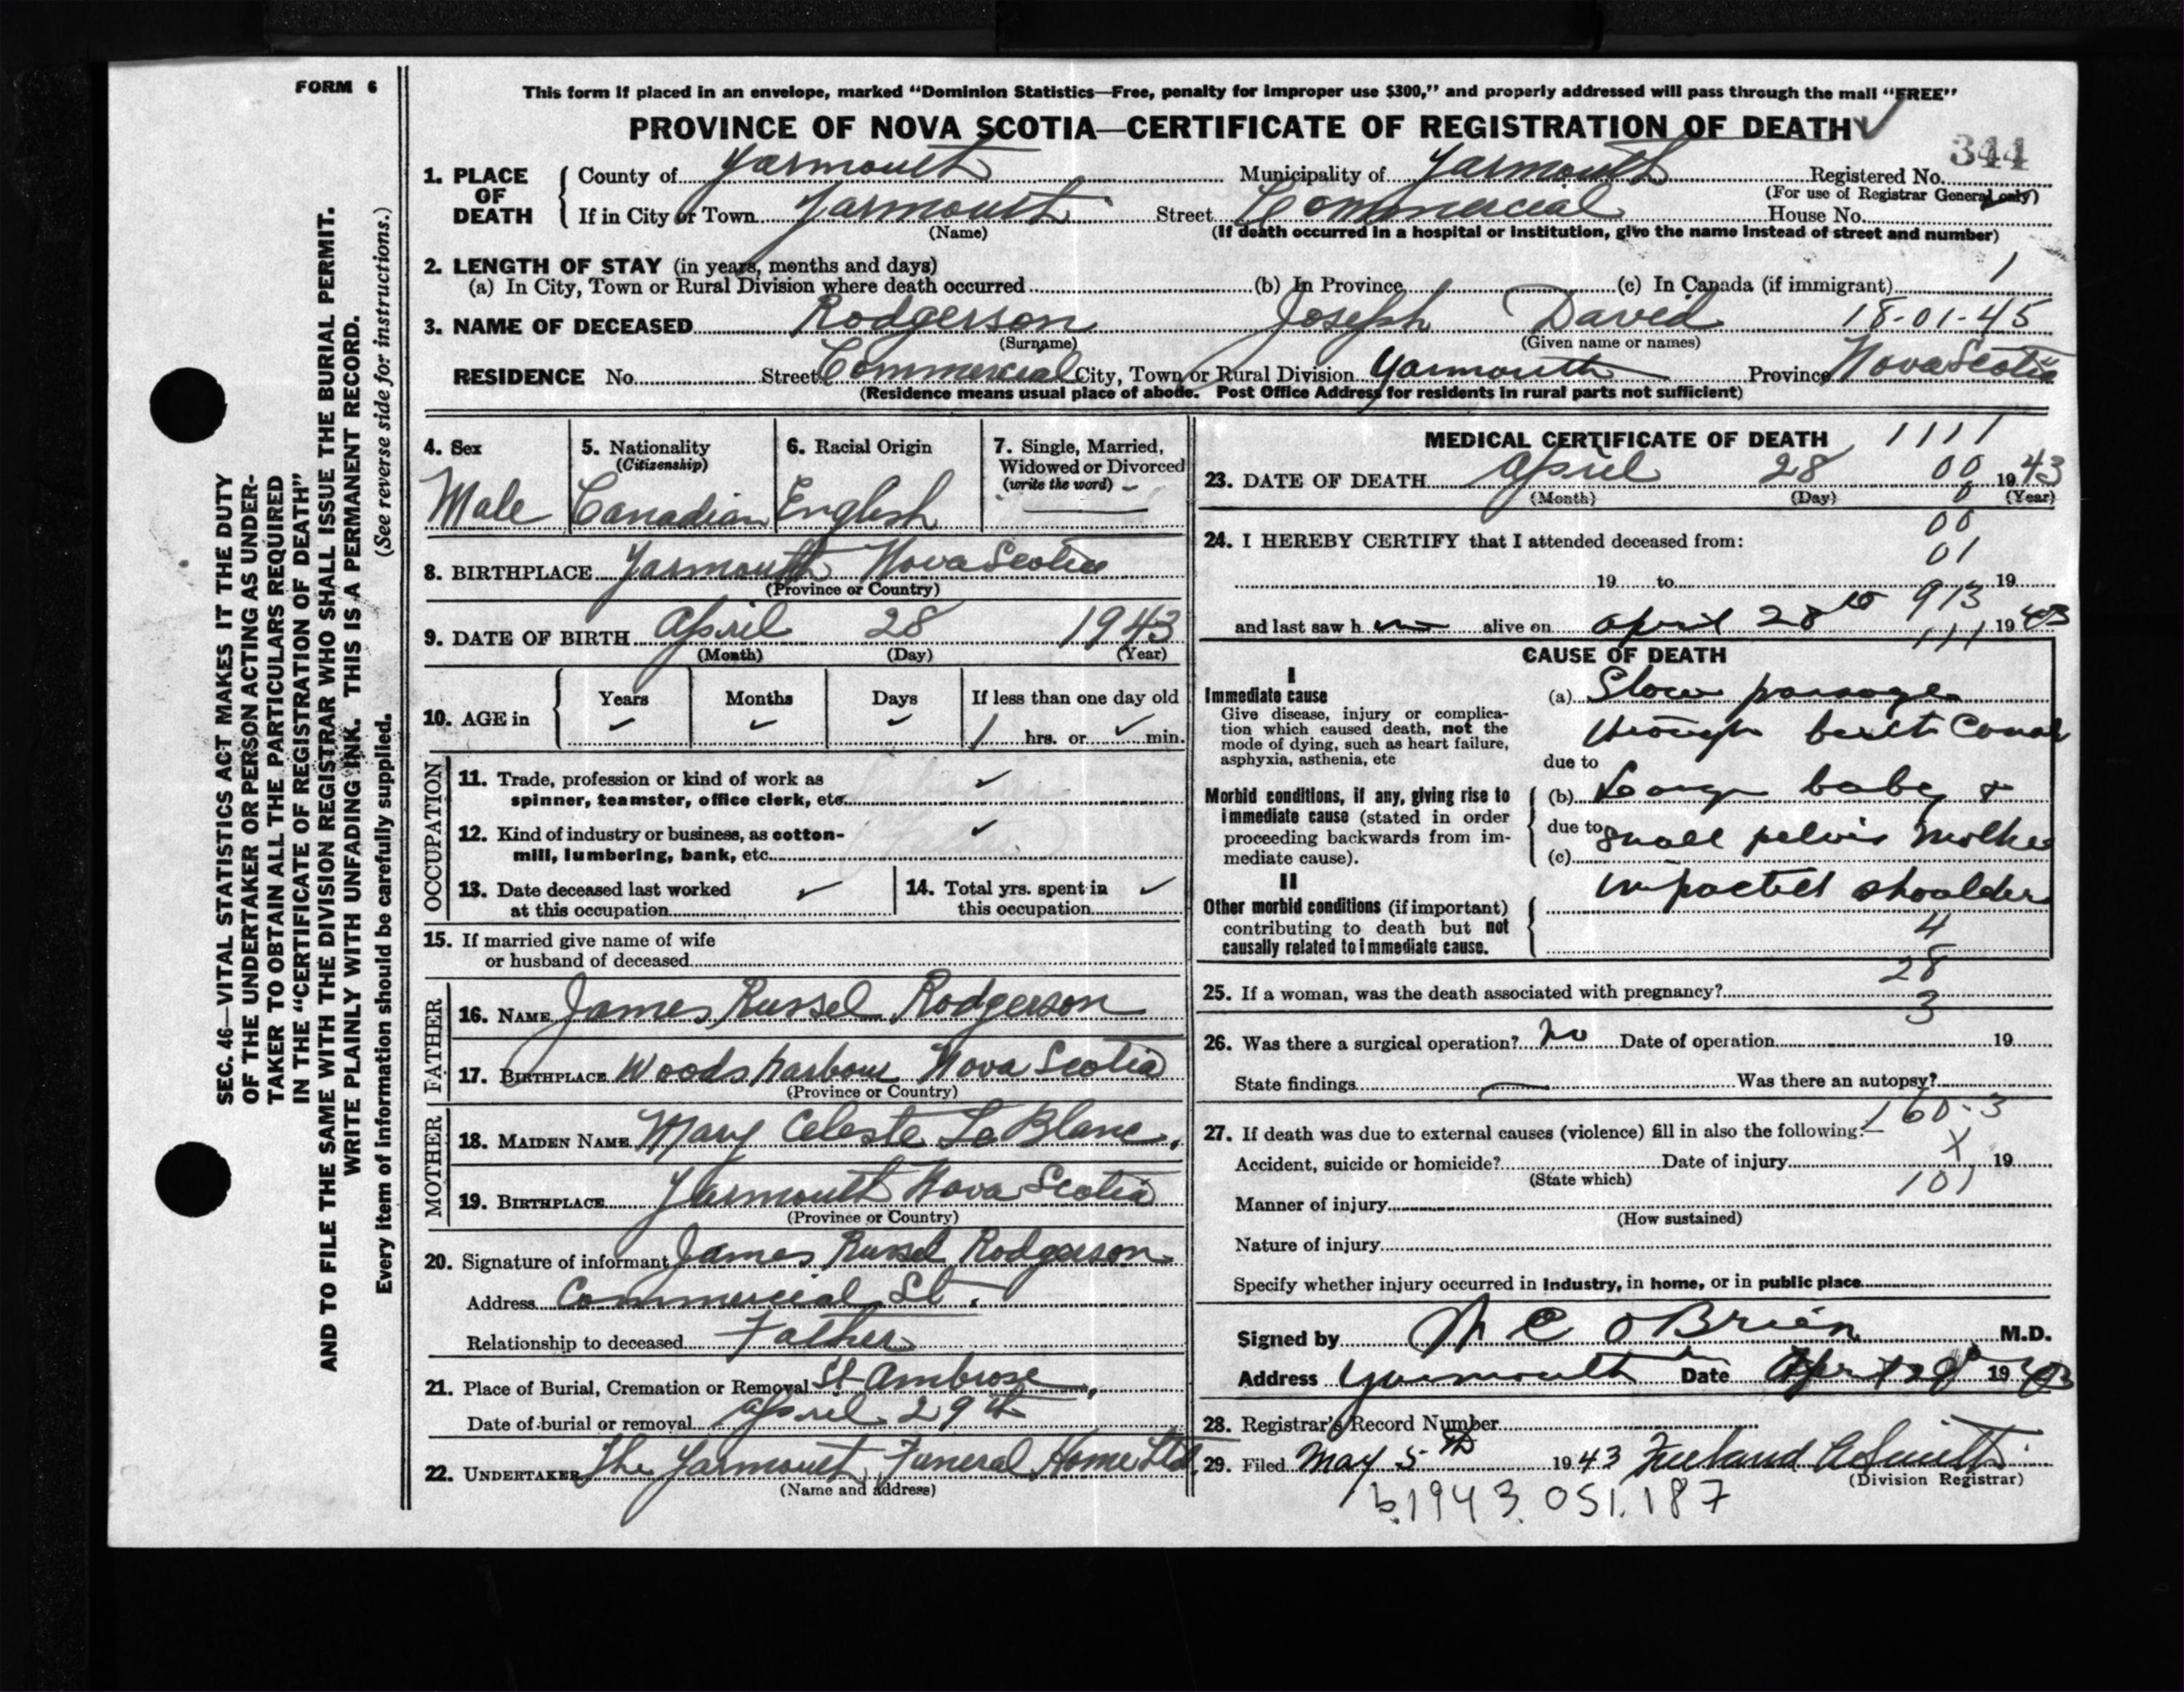 FORM 6
This form if placed in an envelope, marked “Dominion Statistics—Free, penalty for improper use $300,” and properly addressed will pass through the mail “FREE”
PROVINCE OF NOVA SCOTIA—CERTIFICATE OF REGISTRATION OF DEATH
344
1. PLACE OF DEATH
County of Yarmouth Municipality of Yarmouth Registered No.
(For use of Registrar General only)
If in City or Town Yarmouth Street Commercial House No.
(Name) (If death occurred in a hospital or institution, give the name instead of street and number)
2. LENGTH OF STAY (in years, months and days) 1
(a) In City, Town or Rural Division where death occurred (b) In Province (c) In Canada (if immigrant)
3. NAME OF DECEASED Rodgerson Joseph David 18-01-45
(Surname) (Given name or names)
RESIDENCE No. Street Commercial City, Town or Rural Division Yarmouth Province Nova Scotia
(Residence means usual place of abode. Post Office Address for residents in rural parts not sufficient)
4. Sex
Male
5. Nationality
(Citizenship)
Canadian
6. Racial Origin
English
7. Single, Married,
Widowed or Divorced
(write the word)
8. BIRTHPLACE Yarmouth Nova Scotia
(Province or Country)
9. DATE OF BIRTH April 28 1943
(Month) (Day) (Year)
10. AGE in
Years Months Days If less than one day old
1 hrs. or min.
OCCUPATION
11. Trade, profession or kind of work as
spinner, teamster, office clerk, etc.
12. Kind of industry or business, as cotton-
mill, lumbering, bank, etc.
13. Date deceased last worked
at this occupation
14. Total yrs. spent in
this occupation
15. If married give name of wife
or husband of deceased
FATHER
16. NAME James Russel Rodgerson
17. BIRTHPLACE Woods harbour Nova Scotia
(Province or Country)
MOTHER
18. MAIDEN NAME Mary Celeste LeBlanc.
19. BIRTHPLACE Yarmouth Nova Scotia
(Province or Country)
20. Signature of informant James Russel Rodgerson
Address Commercial St.
Relationship to deceased Father
21. Place of Burial, Cremation or Removal St Ambrose
Date of burial or removal April 29th
22. UNDERTAKER The Yarmouth Funeral Home Ltd.
(Name and address)
MEDICAL CERTIFICATE OF DEATH 1111
23. DATE OF DEATH April 28 00 1943
(Month) (Day) (Year)
00
24. I HEREBY CERTIFY that I attended deceased from:
01
19 to 19
913
and last saw h im alive on April 28th 1943
111
CAUSE OF DEATH
I
Immediate cause
Give disease, injury or complica-
tion which caused death, not the
mode of dying, such as heart failure,
asphyxia, asthenia, etc
(a) Slow passage
through birth Canal
due to
Morbid conditions, if any, giving rise to
immediate cause (stated in order
proceeding backwards from im-
mediate cause).
(b) Large baby &
due to
(c) small pelvis mother
II
Other morbid conditions (if important)
contributing to death but not
causally related to immediate cause.
impacted shoulder
4
28
25. If a woman, was the death associated with pregnancy?
3
26. Was there a surgical operation? No Date of operation 19
State findings Was there an autopsy?
160-3
27. If death was due to external causes (violence) fill in also the following:—
X
Accident, suicide or homicide? Date of injury 19
(State which) 101
Manner of injury
(How sustained)
Nature of injury
Specify whether injury occurred in industry, in home, or in public place
Signed by M C O'Brien M.D.
Address Yarmouth Date April 28 1943
28. Registrar's Record Number
29. Filed May 5th 1943
(Division Registrar)
b.1943.051.187
SEC. 46—VITAL STATISTICS ACT MAKES IT THE DUTY
OF THE UNDERTAKER OR PERSON ACTING AS UNDER-
TAKER TO OBTAIN ALL THE PARTICULARS REQUIRED
IN THE “CERTIFICATE OF REGISTRATION OF DEATH”
AND TO FILE THE SAME WITH THE DIVISION REGISTRAR WHO SHALL ISSUE THE BURIAL PERMIT.
WRITE PLAINLY WITH UNFADING INK. THIS IS A PERMANENT RECORD.
(See reverse side for instructions.)
Every item of information should be carefully supplied.